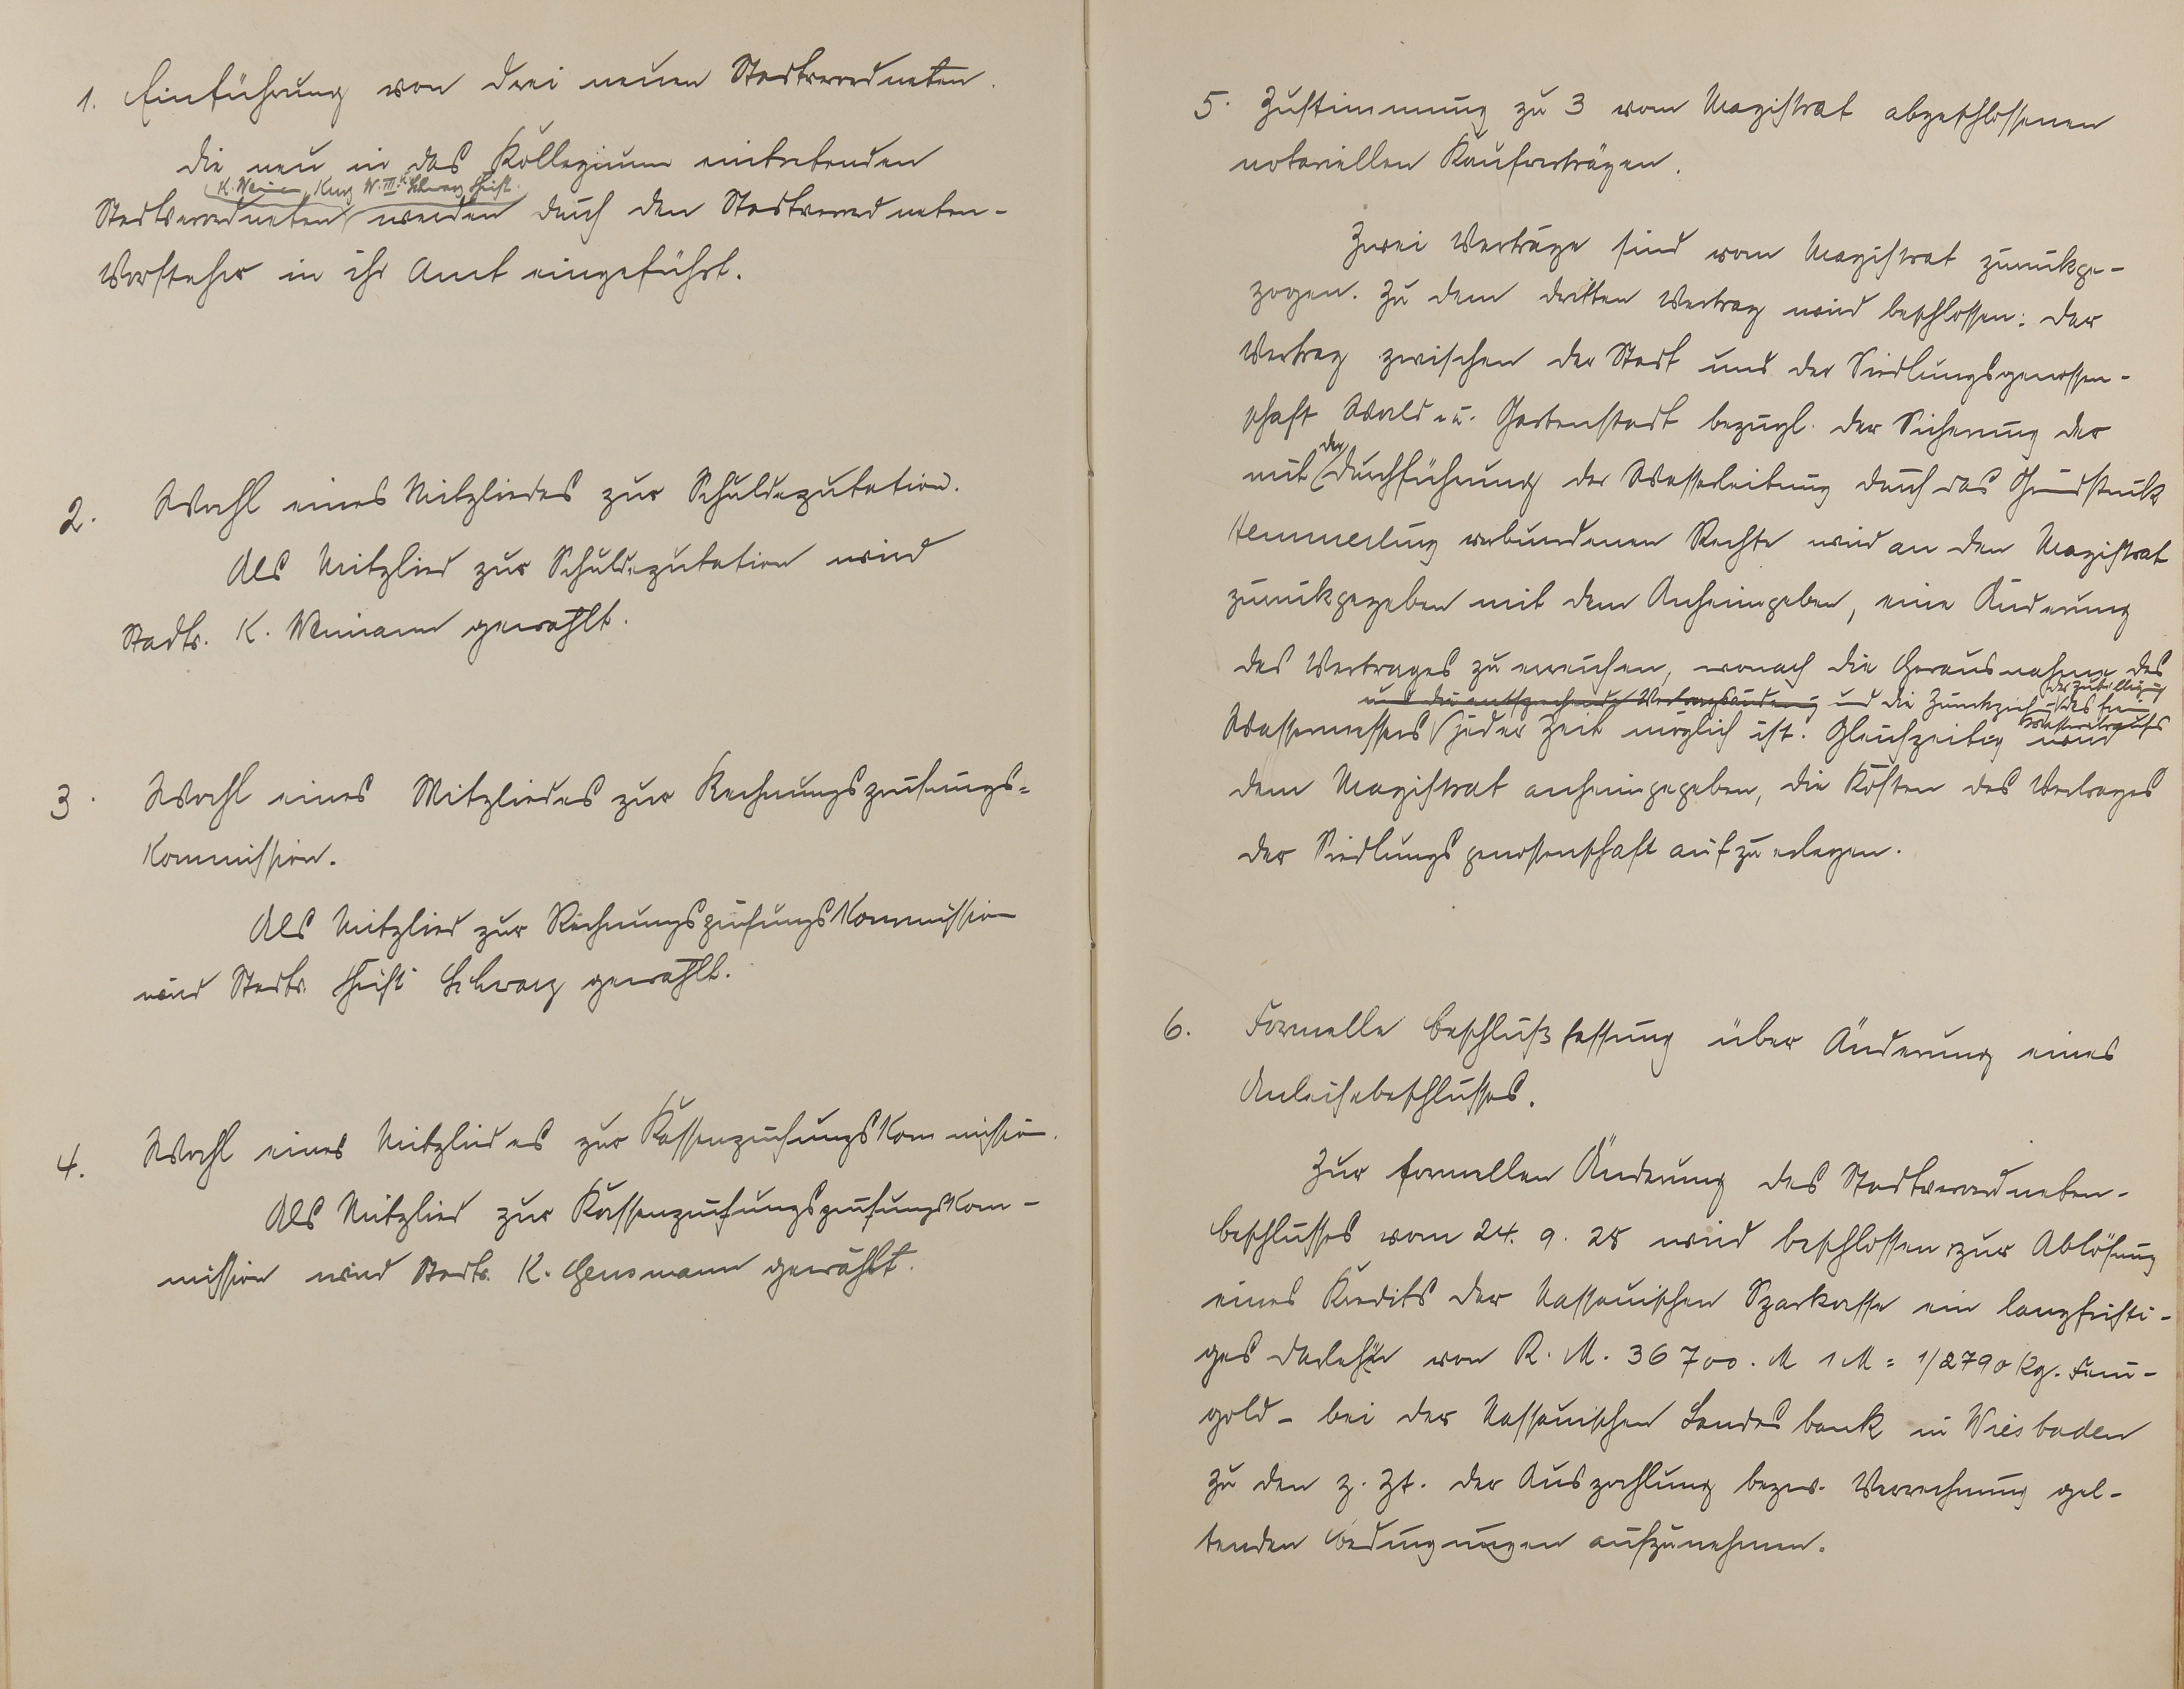 1. Einführung von drei neuen Stadtverordneten.
Die neu in das Kollegium eintretenden
K. Weimann, Kurz W. III. u. Schwarz Christ.
Stadtverordneten werden durch den Stadtverordneten-
Vorsteher in ihr Amt eingeführt.
2. Wahl eines Mitgliedes zur Schuldeputation.
Als Mitglied zur Schuldeputation wird
Stadtv. K. Weimann gewählt.
3. Wahl eines Mitgliedes zur Rechnungsprüfungs-
Kommission.
Als Mitglied zur Rechnungsprüfungskommission
wird Stadtv. Christ. Schwarz gewählt.
4. Wahl eines Mitgliedes zur Kassenprüfungskommission.
Als Mitglied zur Kassenprüfungsprüfungskom-
mission wird Stadtv. K. Hensmann gewählt.
5. Zustimmung zu 3 vom Magistrat abgeschlossenen
notariellen Kaufverträgen.
Zwei Verträge sind vom Magistrat zurückge-
zogen. Zu dem dritten Vertrag wird beschlossen: Der
Vertrag zwischen der Stadt und der Siedlungsgenossen-
schaft Wald- u. Gartenstadt bezügl. der Sicherung der
mit der Durchführung der Wasserleitung durch das Grundstück
Hemmerling verbundenen Rechte wird an den Magistrat
zurückgegeben mit dem Anheimgeben, eine Änderung
des Vertrages zu erreichen, wonach die Herausnahme des
und die entsprechende Vertragsänderung und die Zurückziehung der Zubilligung des frei Wasserbezugs
Wassermessers jeder Zeit möglich ist. Gleichzeitig wird
dem Magistrat anheimgegeben, die Kosten des Vertrages
der Siedlungsgenossenschaft aufzuerlegen.
6. Formelle Beschlußfassung über Änderung eines
Anleihebeschlusses.
Zur formellen Änderung des Stadtverordneten-
beschlusses vom 24. 9. 28 wird beschlossen zur Ablösung
eines Kredits der Nassauischen Sparkasse ein langfristi-
ges Darlehn von R. M. 36 700. M 1 M = 1/2790 Kg. Fein-
gold - bei der Nassauischen Landesbank in Wiesbaden
zu den z. Zt. der Auszahlung bezw. Verrechnung gel-
tenden Bedingungen aufzunehmen.